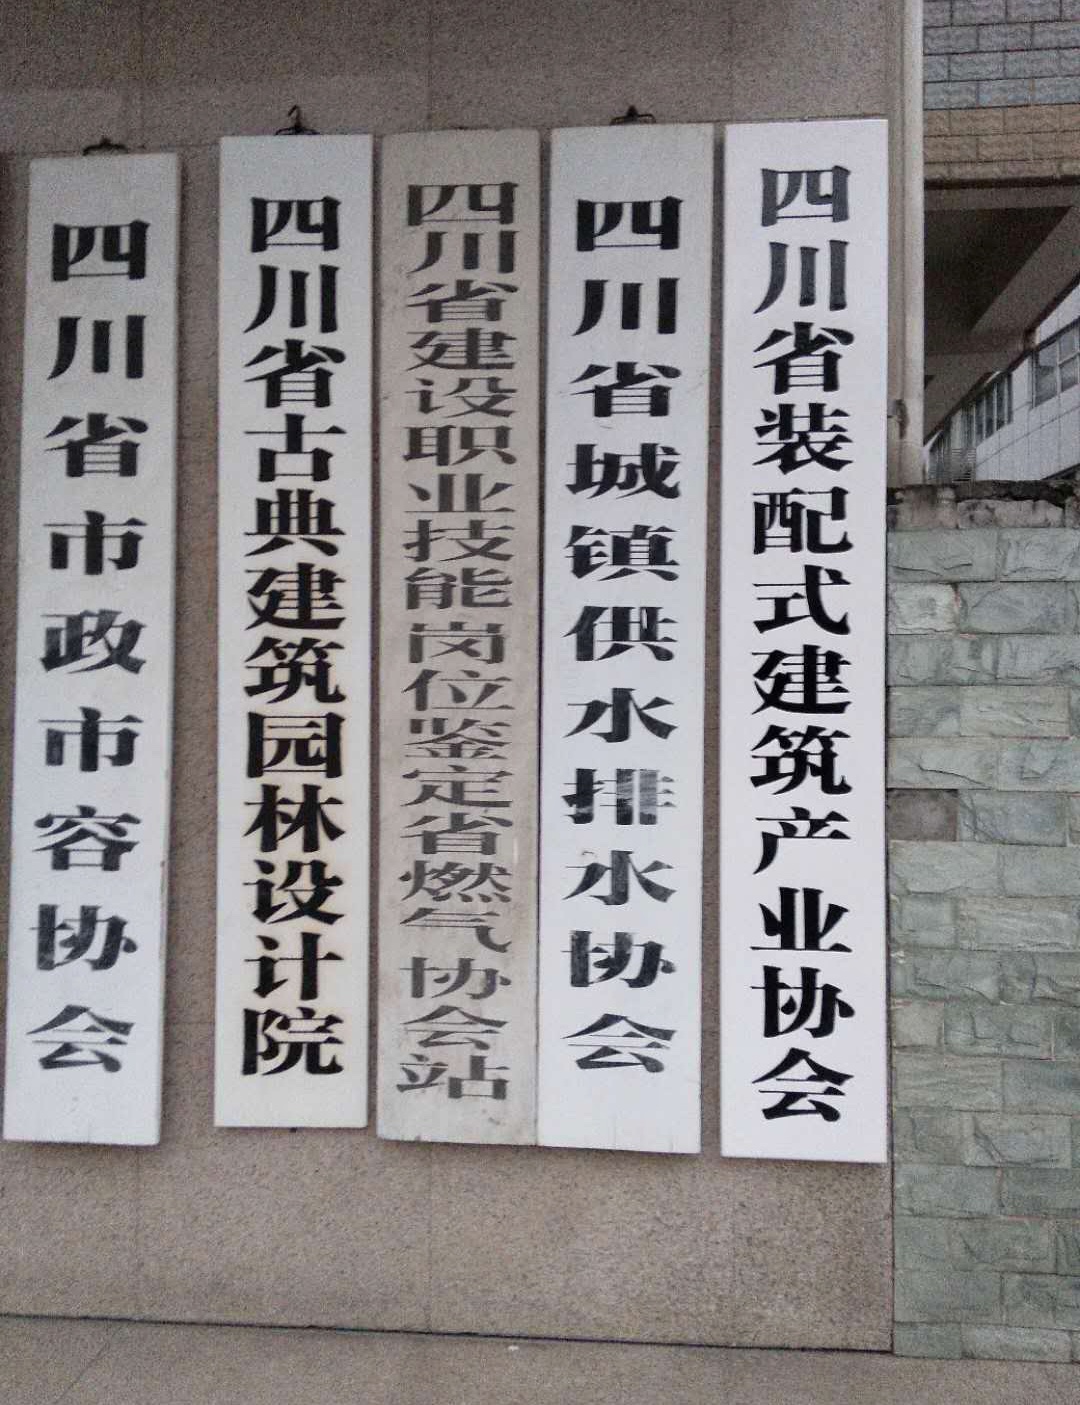 四川省市政市容协会
四川省古典建筑园林设计院
四川省建设职业技能岗位鉴定省燃气协会站
四川省城镇供水排水协会
四川省装配式建筑产业协会